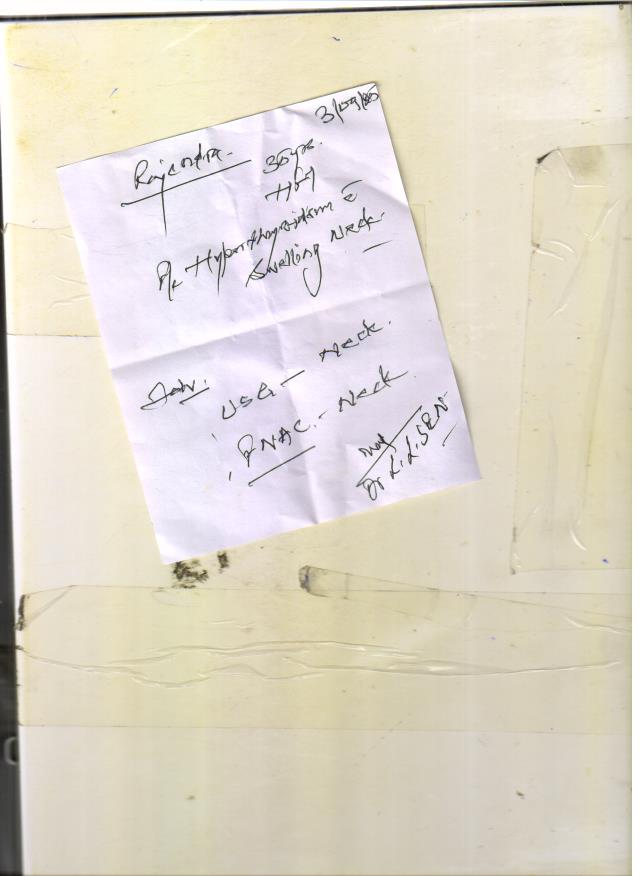 Rajendra
36 yrs.
P/c Hyperthyroidism c̄
Swelling Neck.
Adv.
USG - Neck.
FNAC. - Neck
Dr L.L. SEN